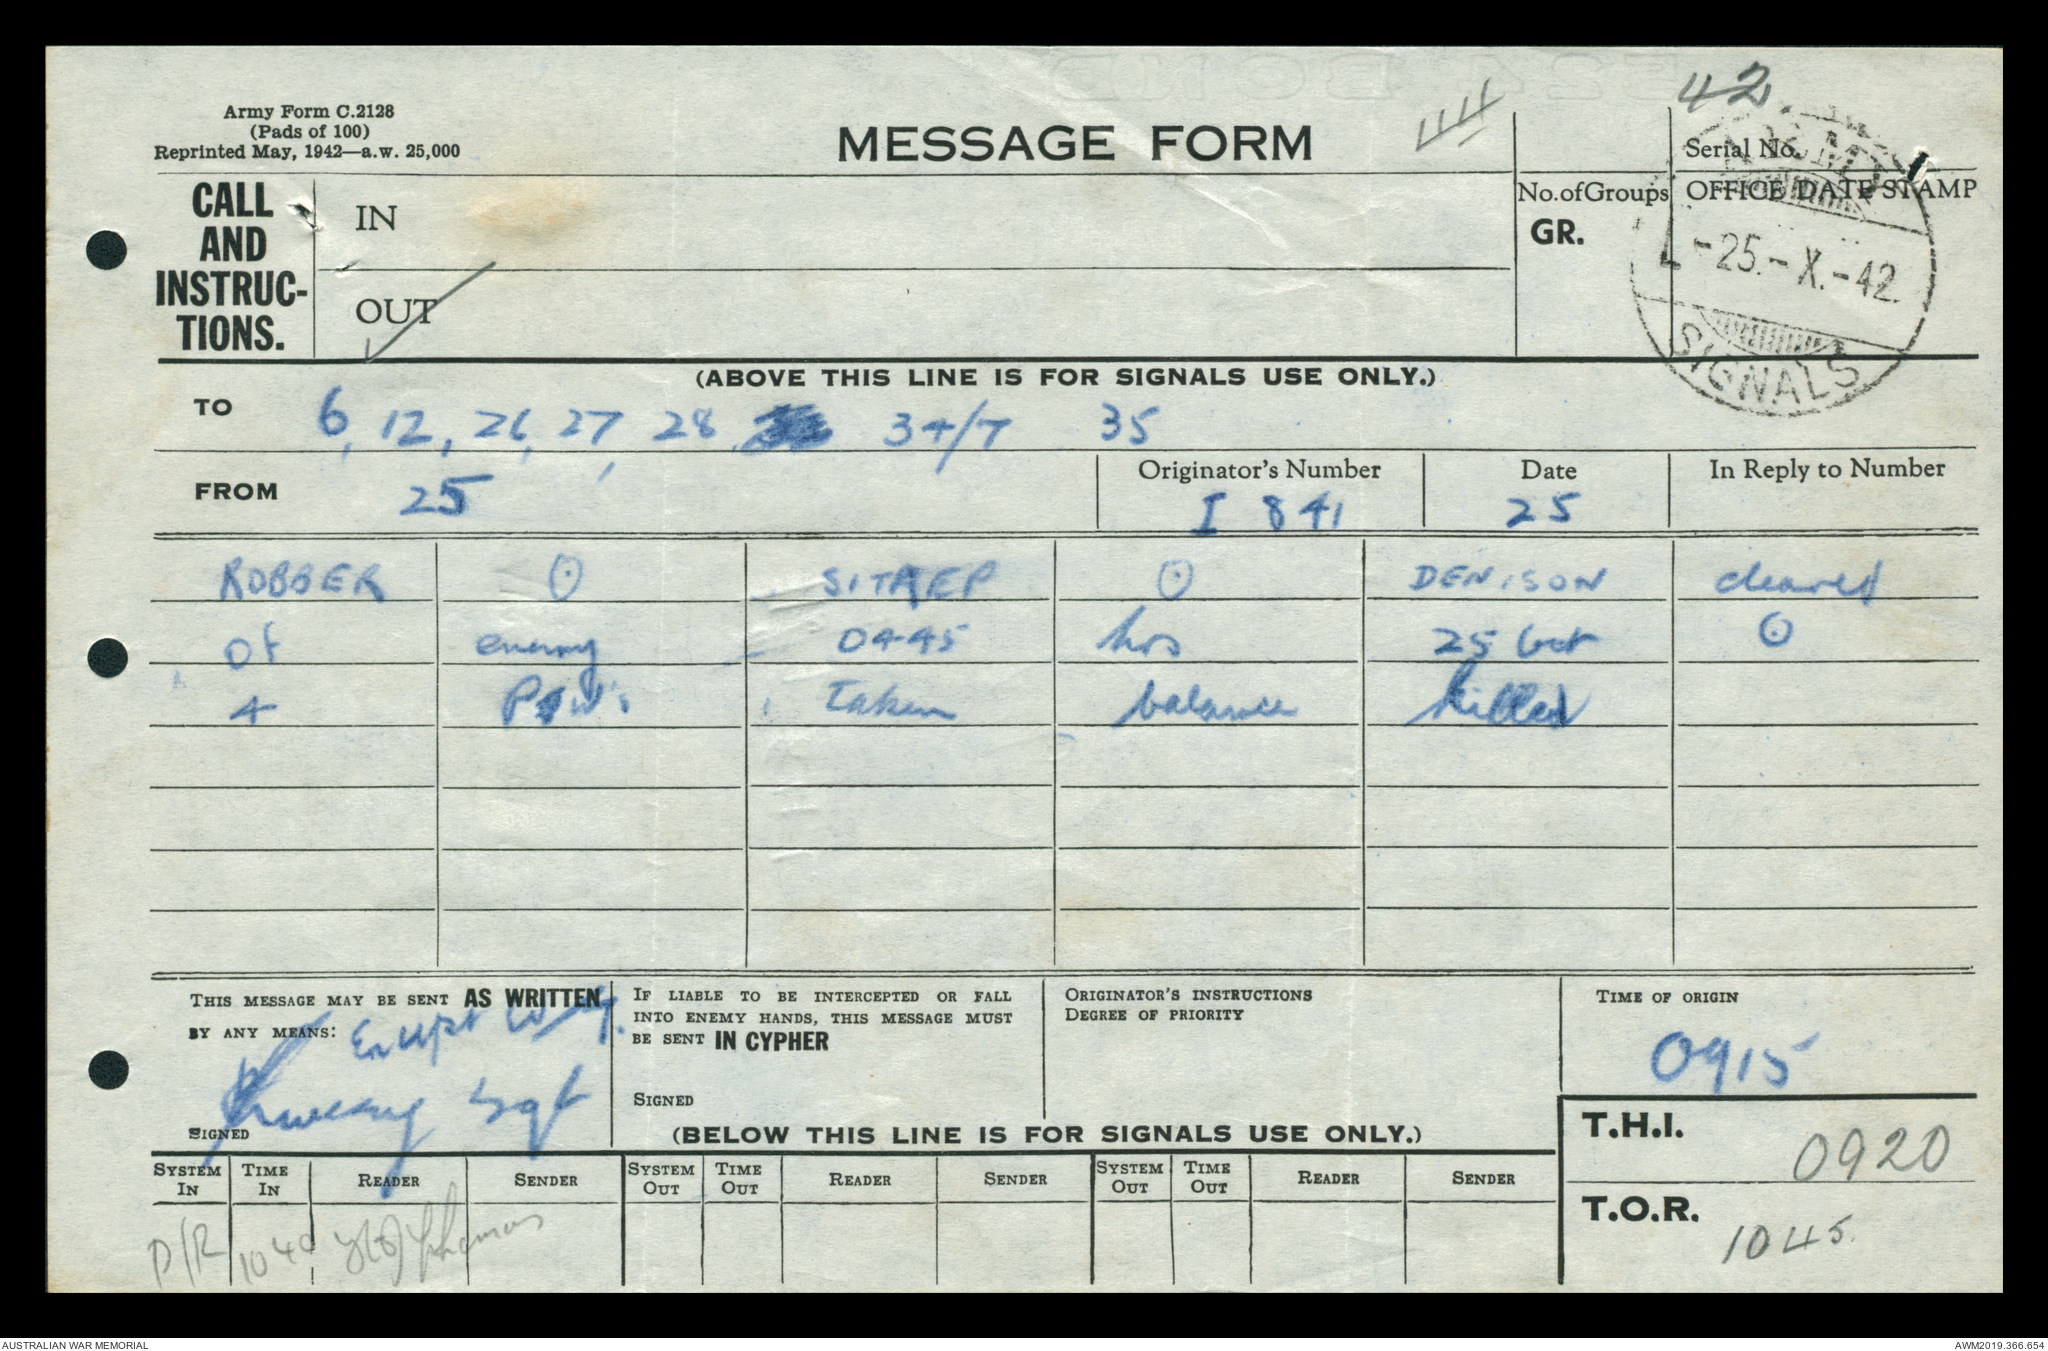 Army Form C.2128
(Pads of 100)
Reprinted May, 1942—a.w. 25,000
MESSAGE FORM
42
Serial No.
CALL AND INSTRUC-TIONS.
IN
OUT
No. of Groups
GR.
OFFICE DATE STAMP
-25.-X.-42.
SIGNALS
(ABOVE THIS LINE IS FOR SIGNALS USE ONLY.)
TO 6, 12, 26, 27, 28 34/7 35
FROM 25
Originator's Number
I 841
Date
25
In Reply to Number
ROBBER ⊙ SITREP ⊙ DENISON cleared
of enemy 0445 hrs 25 Oct ⊙
4 PsW. Taken balance killed
THIS MESSAGE MAY BE SENT AS WRITTEN
BY ANY MEANS: Except W/T.
Sgt
SIGNED
IF LIABLE TO BE INTERCEPTED OR FALL
INTO ENEMY HANDS, THIS MESSAGE MUST
BE SENT IN CYPHER
SIGNED
ORIGINATOR'S INSTRUCTIONS
DEGREE OF PRIORITY
TIME OF ORIGIN
0915
(BELOW THIS LINE IS FOR SIGNALS USE ONLY.)
T.H.I. 0920
T.O.R. 1045.
SYSTEM IN TIME IN READER SENDER SYSTEM OUT TIME OUT READER SENDER SYSTEM OUT TIME OUT READER SENDER
D/R 1040
AUSTRALIAN WAR MEMORIAL
AWM2019.366.654